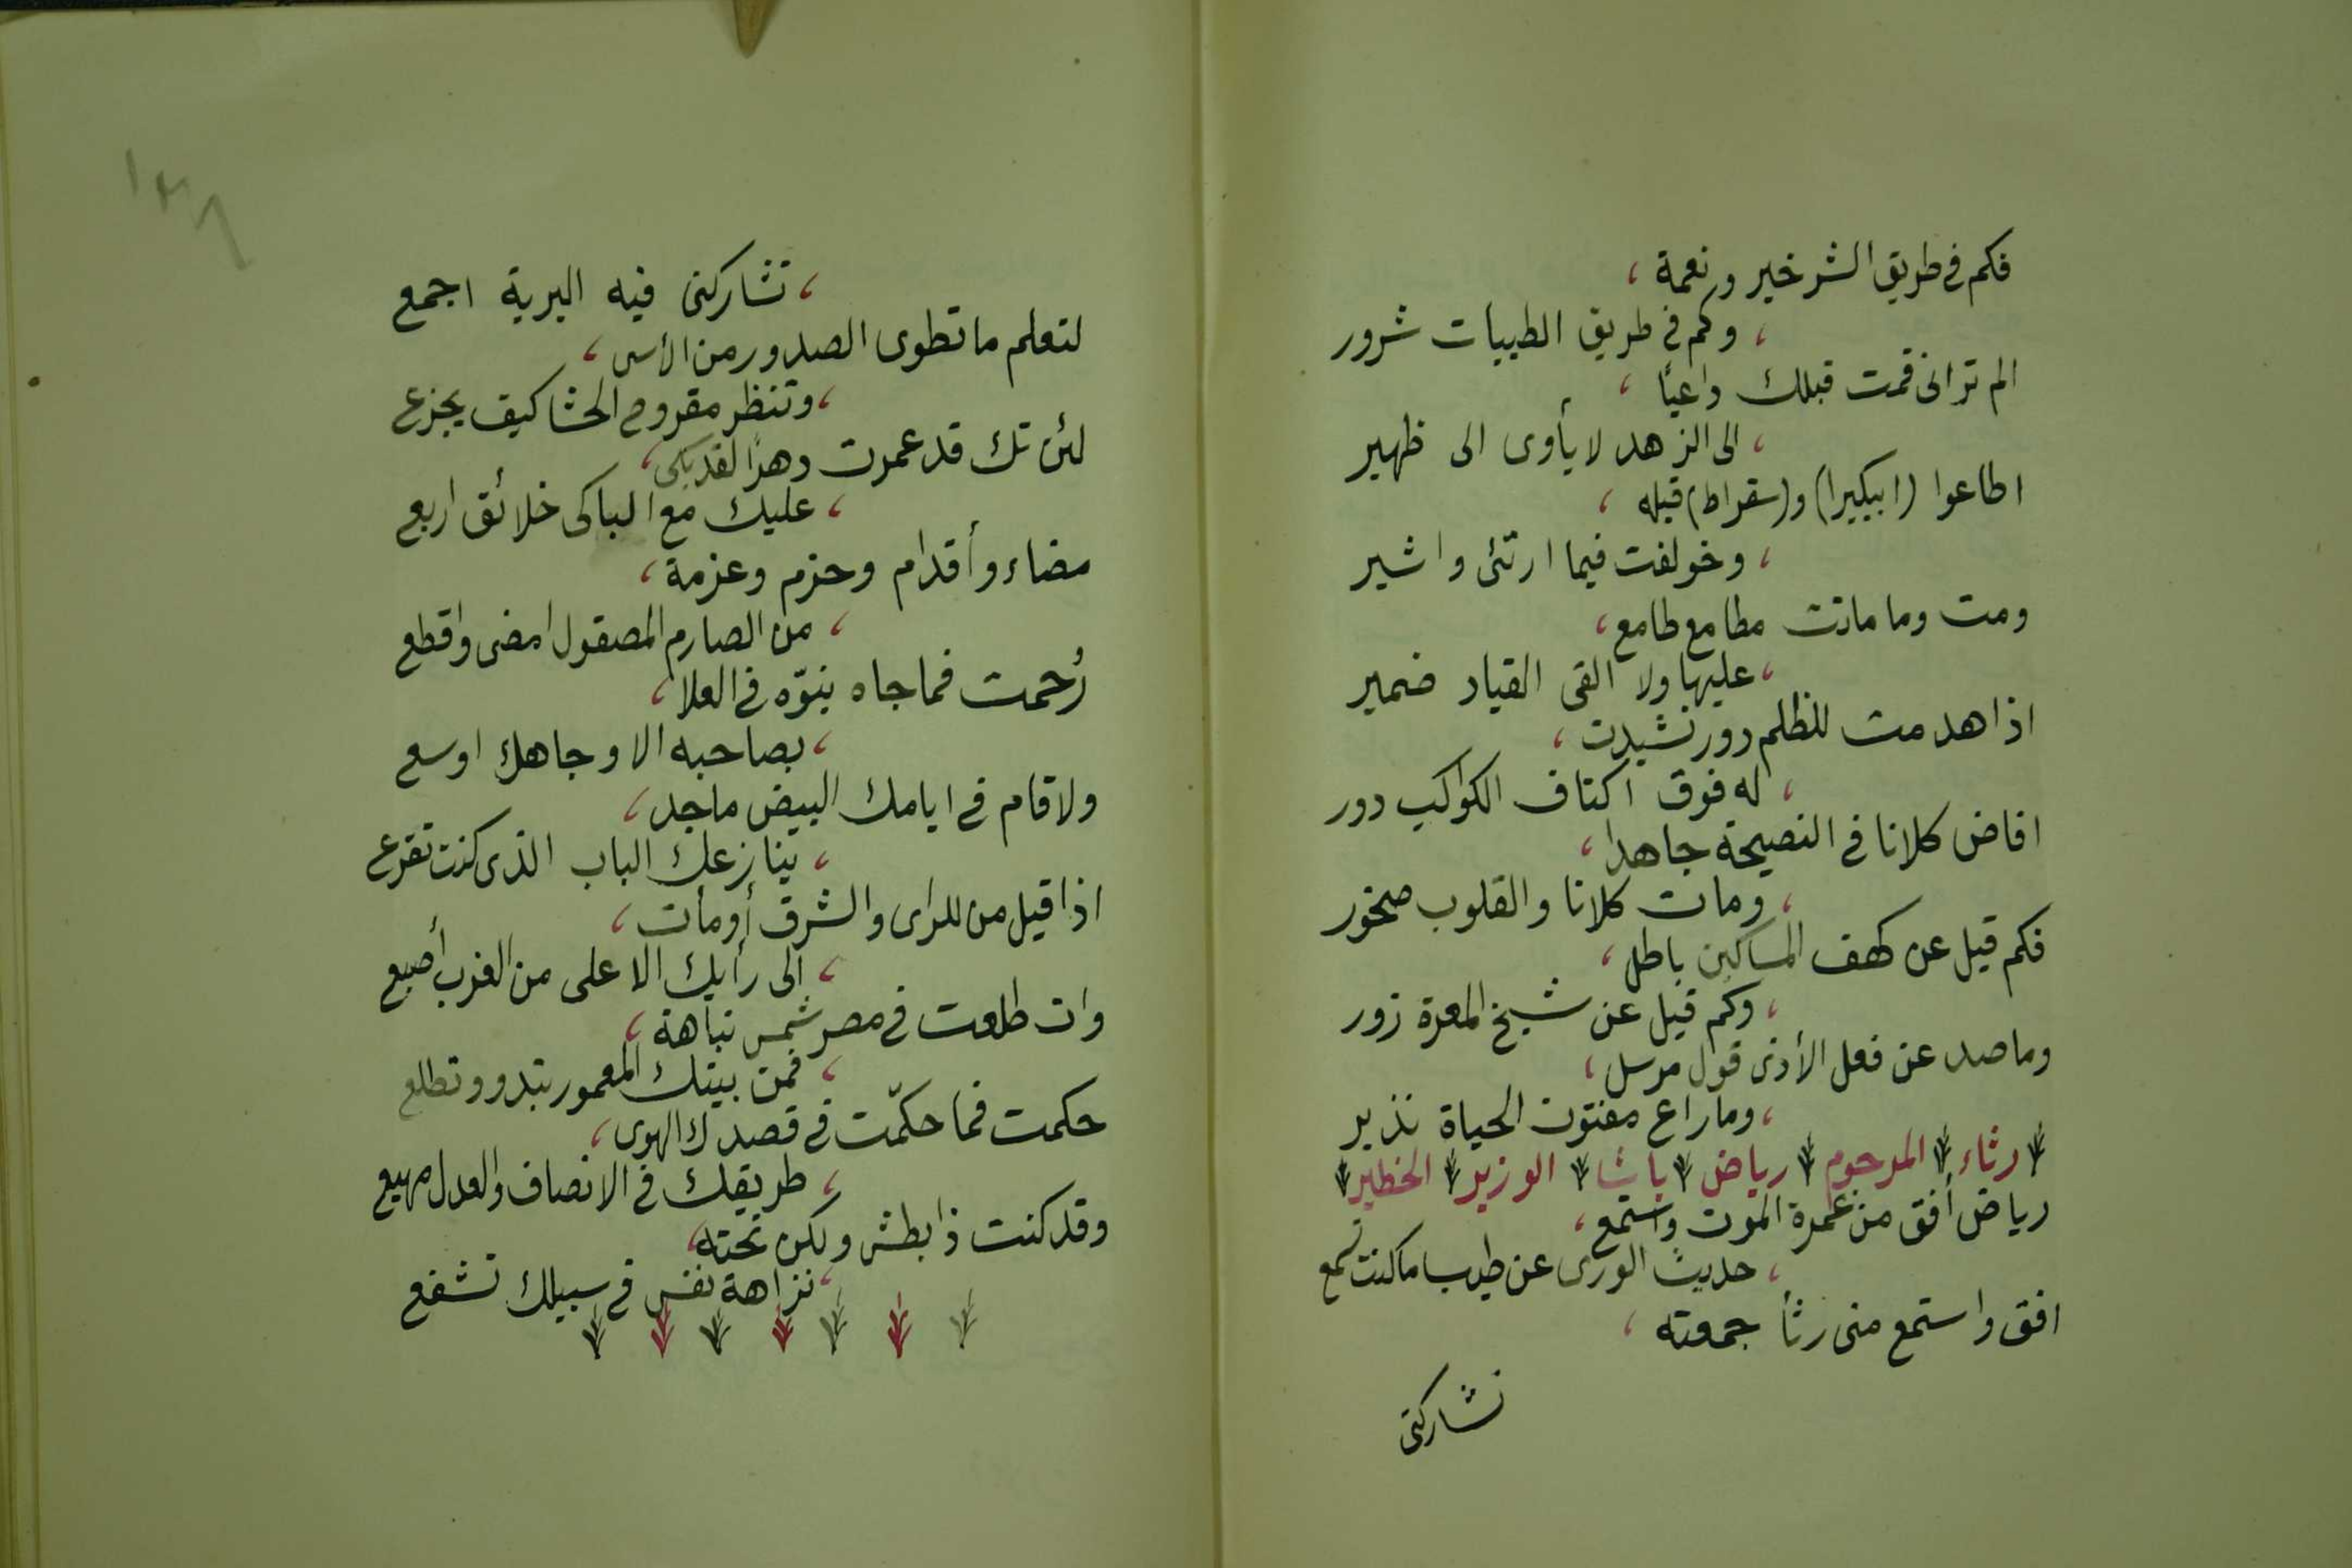 فكم فى طريق الشر خير ونعمة ،
، وكم فى طريق الطيبات شرور
الم ترانى قمت قبلك داعيًا ،
، الى الزهد لا يأوى الى ظهير
اطاعوا (ابيكيرا) و(سقراط) قبله ،
، وخولفت فيما ارتئى واشير
ومت وما ماتت مطامع طامع ،
، عليها ولا القى القياد ضمير
اذا هدمت للظلم دور تشيدت ،
، له فوق اكتاف الكواكب دور
افاض كلانا فى النصيحة جاهدا ،
، ومات كلانا والقلوب صخور
فكم قيل عن كهف المساكين باطل ،
، وكم قيل عن شيخ المعرة زور
وما صد عن فعل الأذى قول مرسل ،
، وما راع مفتون الحياة نذير
رثاء المرحوم رياض باشا الوزير الخطير
رياض أفق من غمرة الموت واستمع ،
، حديث الورى عن طيب ما كنت تسمع
افق واستمع منى رثأ جمعته ،
تشاركنى
١٣٨
، تشاركنى فيه البرية اجمع
لتعلم ما تطوى الصدور من الأسى ،
، وتنظر مقروح الحشا كيف يجزع
لئن تك قد عمرت دهرًا لقد بكى ،
، عليك مع الباكى خلائق اربع
مضاء وأقدام وحزم وعزمة ،
، من الصارم المصقول امضى واقطع
رُحمت فما جاه ينوّه فى العلا ،
، بصاحبه الا وجاهك اوسع
ولا قام فى ايامك البيض ماجد ،
، ينازعك الباب الذى كنت تقرع
اذا قيل من للراى والشرق أومأت ،
، الى رأيك الاعلى من الغرب أصبع
وان طلعت فى مصر شمس نباهة ،
، فمن بيتك المعمور تبدو وتطلع
حكمت فما حكّمت فى قصدك الهوى ،
، طريقك فى الانصاف والعدل مهيع
وقد كنت ذا بطش ولكن تحته ،
، نزاهة نفس فى سبيلك تشفع